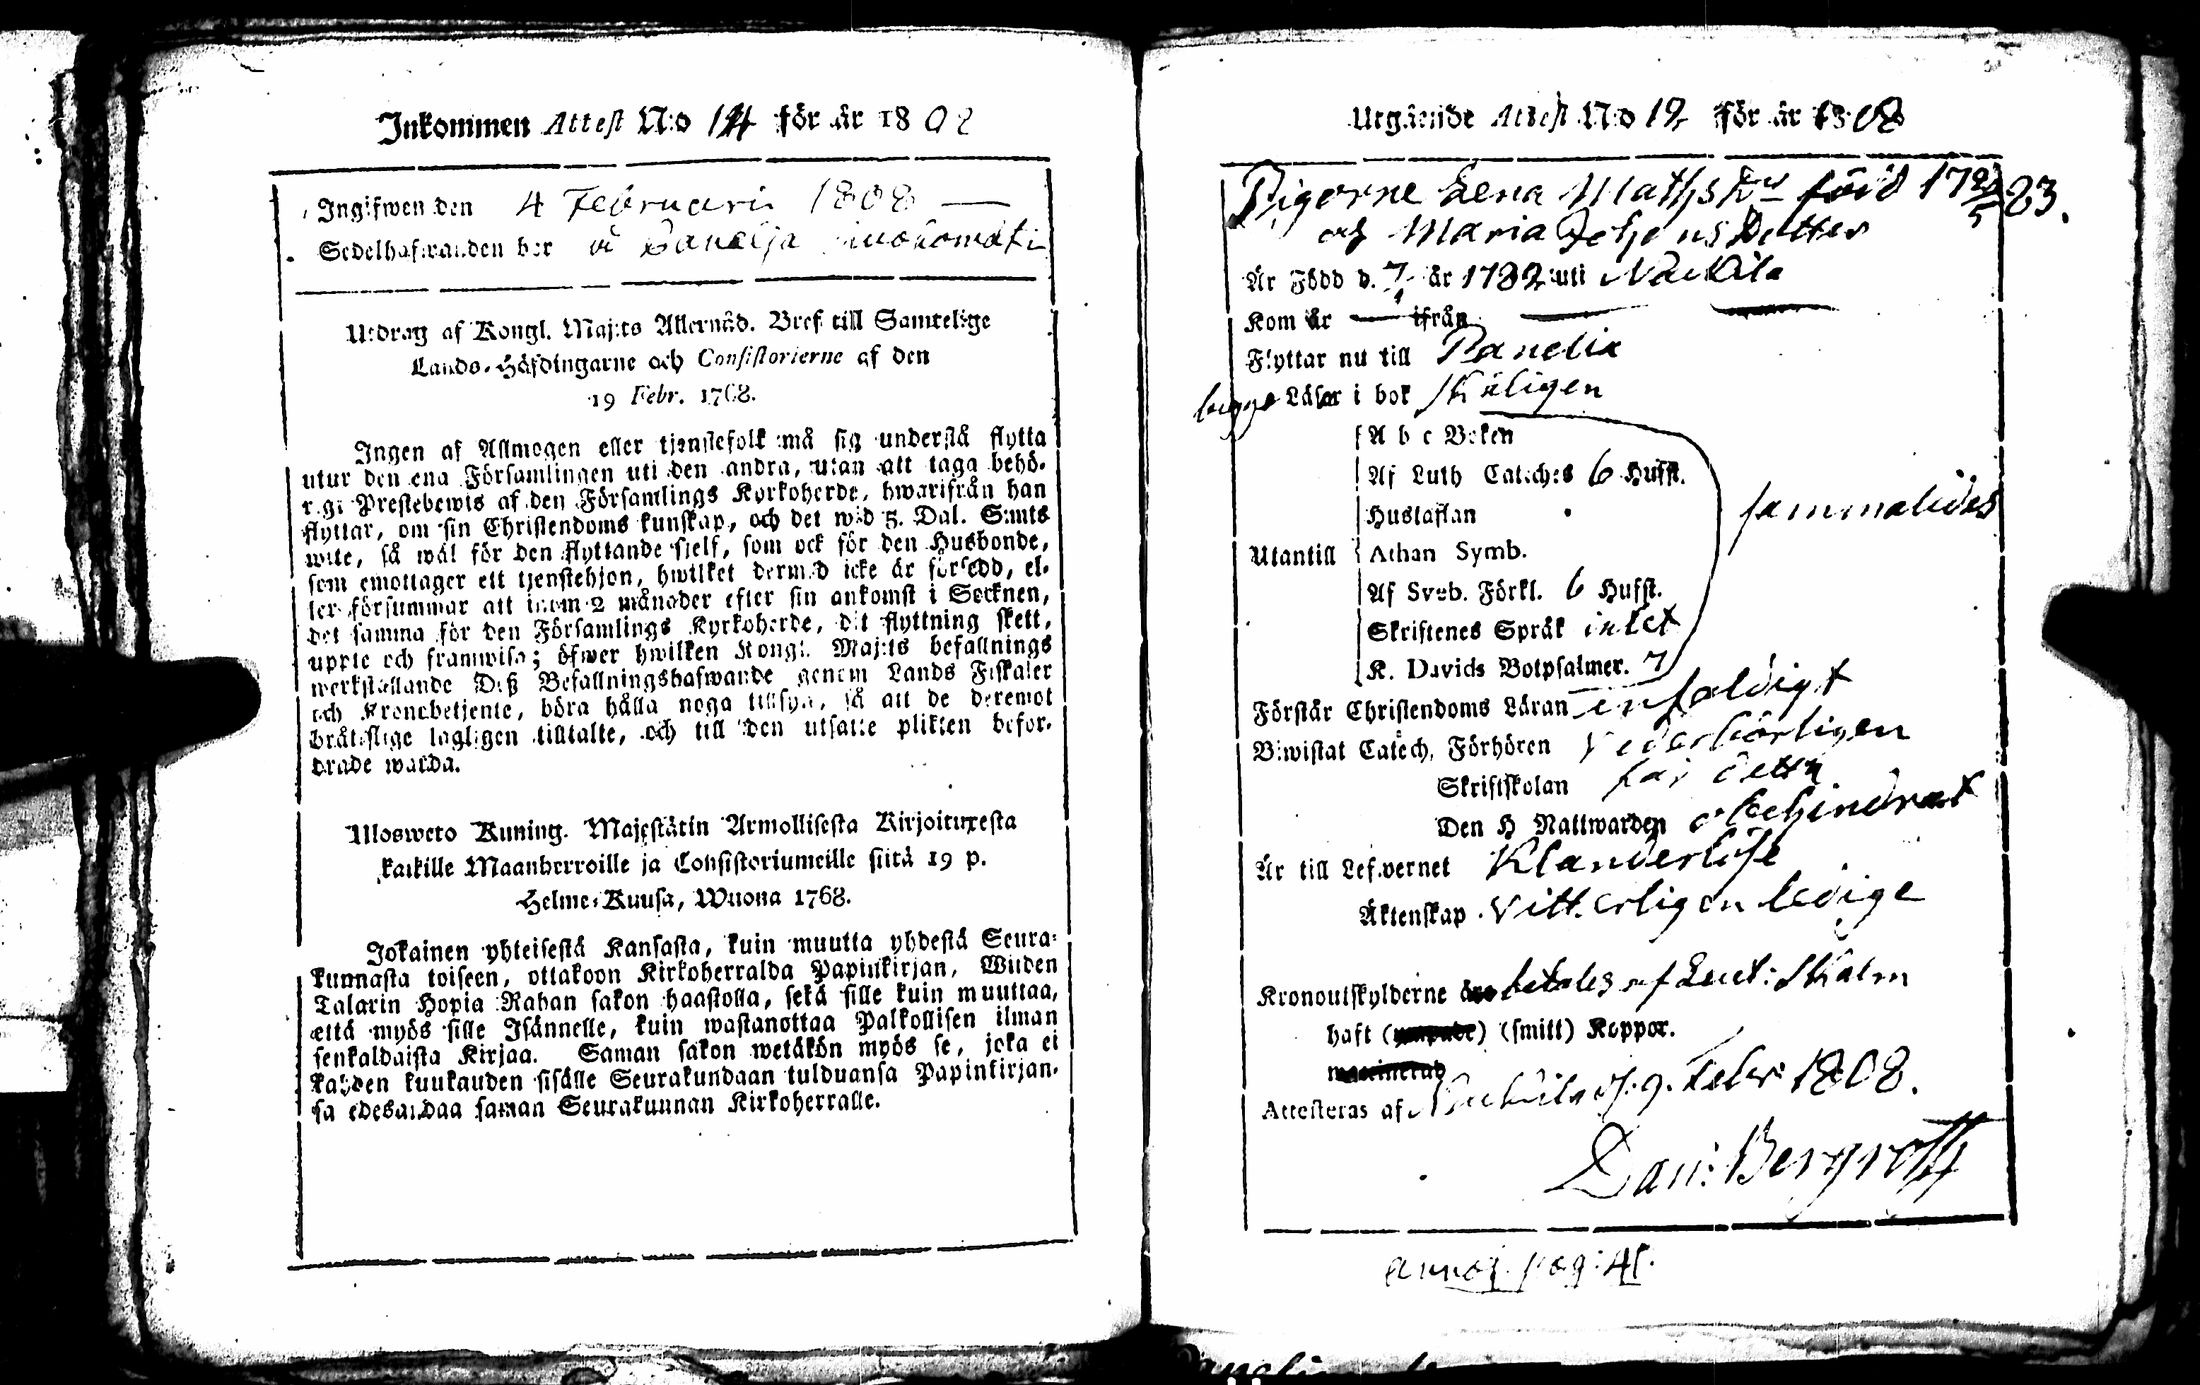 Inkommen Attest N:o 14 för år 1808
Ingifwen den 4 Februari 1808
Sedelhafwanden bor i Panelja
Utdrag af Kongl. Maj:ts Allernåd. Bref till Samtelige
Lands-Höfdingarne och Consistorierne af den
19 Febr. 1768.
Ingen af Allmogen eller tjenstefolk må sig understå flytta
utur den ena Församlingen uti den andra, utan att taga behö-
rigt Prestebewis af den Församlings Kyrkoherde, hwarifrån han
flyttar, om sin Christendoms kunskap, och det wid 5. Dal. S:mts
wite, så wäl för den flyttande sjelf, som ock för den Husbonde,
som emottager ett tjenstehjon, hwilket dermed icke är försedd, el-
ler försummar att inom 2 månader efter sin ankomst i Socknen,
det samma för den Församlings Kyrkoherde, dit flyttning skett,
uppte och framwisa; öfwer hwilken Kongl. Maj:ts befallnings
werkställande Deß Befallningshafwande genom Lands Fiskaler
och Kronobetjente, böra hålla noga tillsyn, så att de deremot
bråtslige lagligen tilltalte, och till den utsatte plikten befor-
drade warda.
Ulosweto Kuning. Majestätin Armollisesta Kirjoituxesta
kaikille Maanherroille ja Consistoriumeille siitä 19 p.
Helme-Kuusa, Wuona 1768.
Jokainen yhteisestä Kansasta, kuin muutta yhdestä Seura-
kunnasta toiseen, ottakoon Kirkoherralda Papinkirjan, Wiiden
Talarin Hopia Rahan sakon haastolla, sekä sille kuin muuttaa,
että myös sille Isännelle, kuin wastanottaa Palkollisen ilman
senkaldaista Kirjaa. Saman sakon wetäkön myös se, joka ei
kahden kuukauden sisälle Seurakundaan tulduansa Papinkirjan-
sa edesandaa saman Seurakunnan Kirkoherralle.
Utgående Attest N:o 12 för år 1808
Pigorne Lena Mathsdr född 17 83.
och Maria Johans Dotter
Är Född d. 7 år 1782 uti Nackila
Kom år — ifrån —
Flyttar nu till Panelia
begge Läsar i bok Skäligen
A b c Boken
Af Luth Cateches 6 Hufst.
Hustaflan
sammaledes
Utantill Athan Symb.
Af Sveb. Förkl. 6 Hufst.
Skriftenes Språk intet
K. Davids Botpsalmer. 7
Förstår Christendoms Läran enfaldigt
Biwistat Catech. Förhören vederbörligen
Skriftskolan för detta
Den H Nattwarden obehindrat
Är till Lefwernet Klanderlöse
Äktenskap Vitterligen ledige
Kronoutskylderne betales af Leut: Skalm
haft () (smitt) Koppor.
Attesteras af Nackila d. 9. Febr: 1808.
Dan: Bergroth
annot. pag: 41.